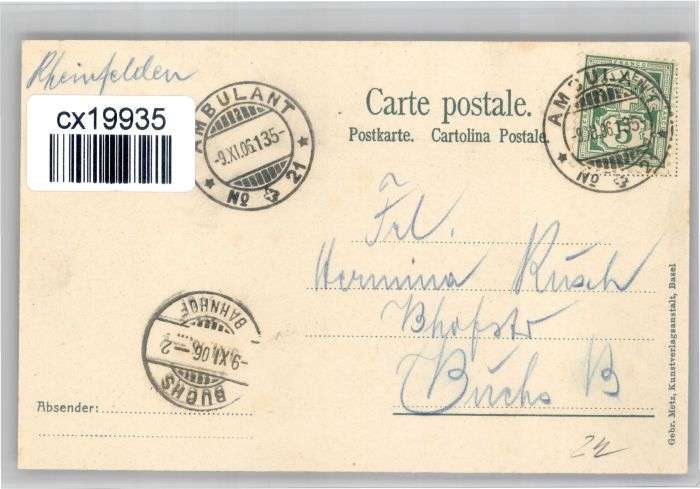 Rheinfelden
cx19935
AMBULANT
-9.XI.06.135-
Nº 21
Carte postale.
Postkarte. Cartolina Postale.
FRANCO
5
AMBULANT
Nº 21
Frl.
Hermina Rusch
Bhofstr
Buchs
BUCHS
-9.XI.06-2
BAHNHOF
Absender:
Gebr. Metz, Kunstverlagsanstalt, Basel